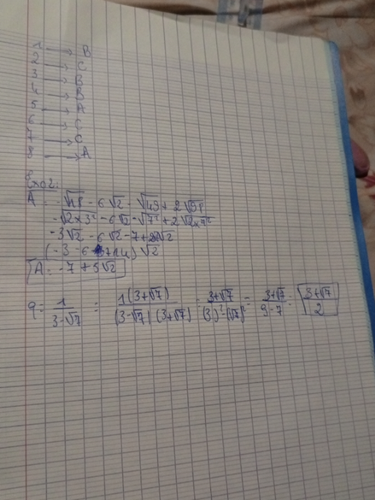 1 → B
2 → C
3 → B
4 → B
5 → A
6 → C
7 → C
8 → A
Exo2:
A = √18 - 6√2 - √49 + 2√98
= √2×3² - 6√2 - √7² + 2√2×7²
= 3√2 - 6√2 - 7 + 14√2
(-3-6+14)√2
A = -7 + 5√2
q = 1/(3-√7) = 1(3+√7)/((3-√7)(3+√7)) = (3+√7)/((3)²-(√7)²) = (3+√7)/(9-7) = (3+√7)/2